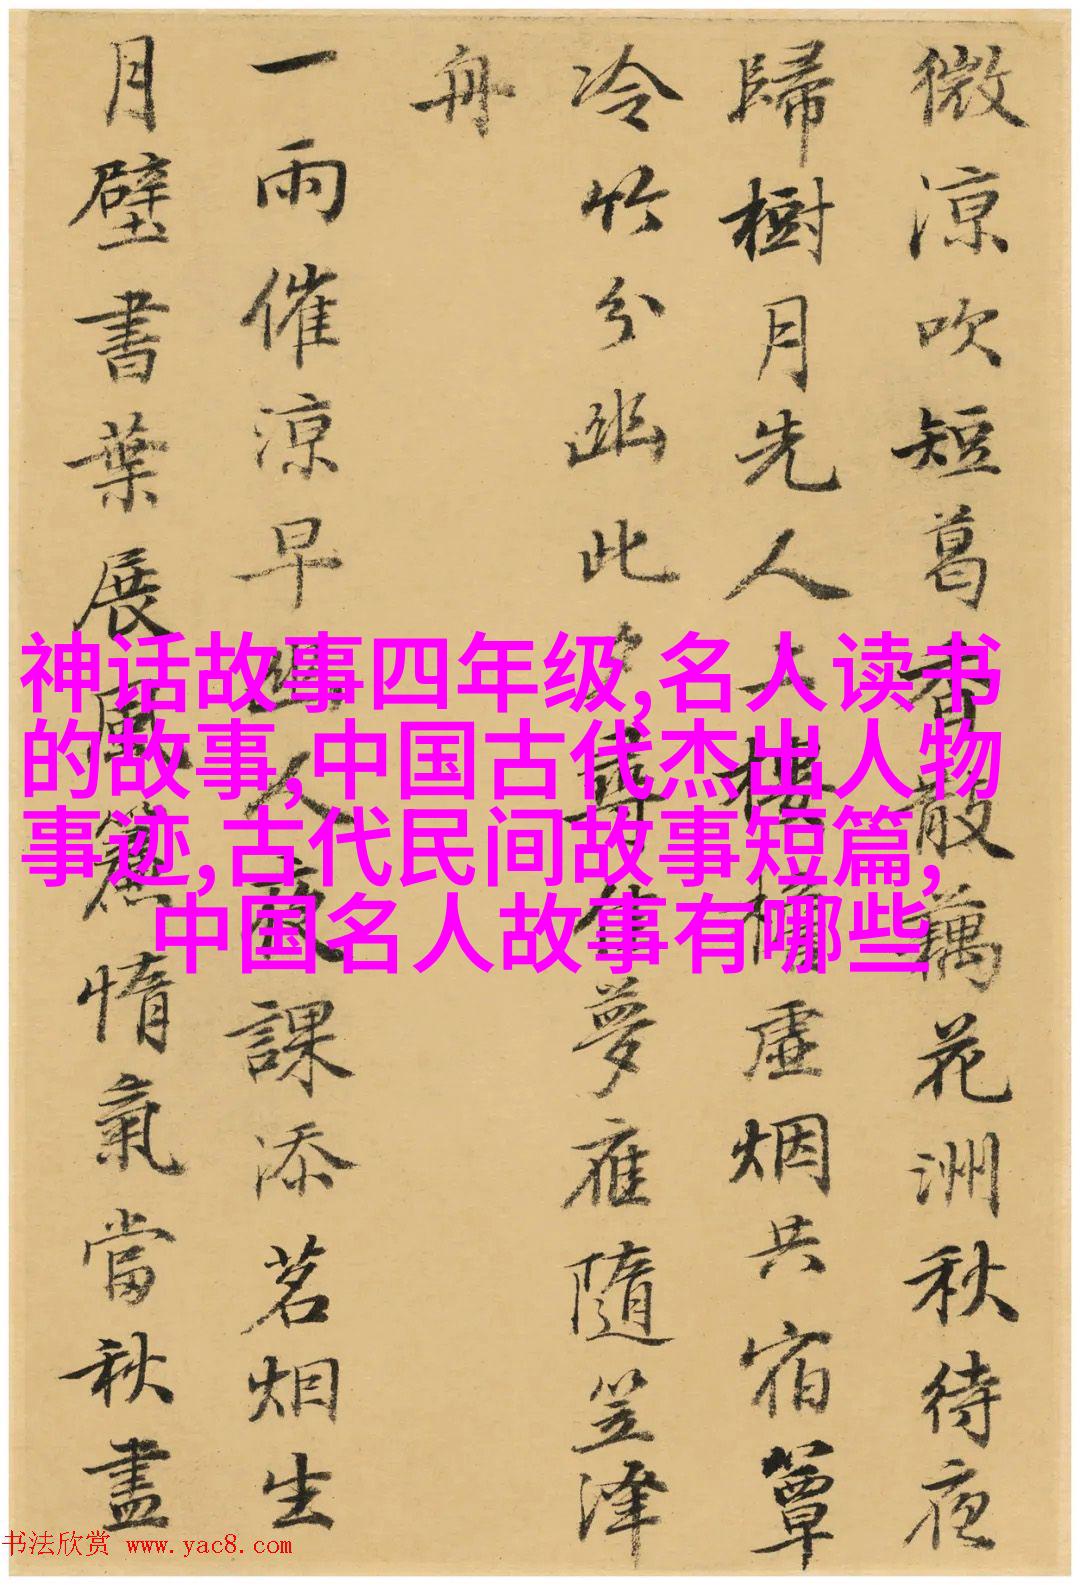 微涼吹短葛香散藕花洲秋待夜
歸樹月先人上樓虛烟共宿簟
冷竹分幽此夕夢雁隨笠澤
舟
一雨催涼早人夜課添茗烟生
月壁書葉展風簾惰氣當秋盡
神话故事四年级,名人读书
的故事,中国古代杰出人物
事迹,古代民间故事短篇,
中国名人故事有哪些
书法欣赏 www.yac8.com